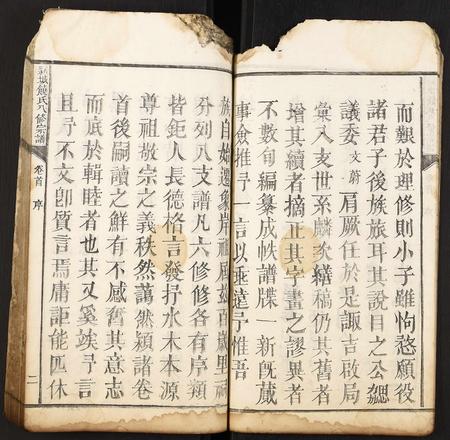 而艱於理修則小子雖怐愗願役
諸君子後族旅耳其說目之公勰
議委文蔚肩厥任於是諏吉啟局
彙入支世系麟次繕稿仍其舊者
增其續者摘正其字畫之謬異者
不數旬編纂成帙譜牒一新旣蕆
事僉推予一言以垂遠予惟吾
族自始遷祖居百歲里
分列八支譜凡六修修各有序類
皆鉅人長德格言發抒水木本源
尊祖敬宗之義秩然藹然穎諸卷
首後嗣讀之鮮有不感奮其意志
而底於輯睦者也其又奚竢予言
且予不文卽質言焉庸詎能匹休
城饒氏八修宗譜
卷首 序
二